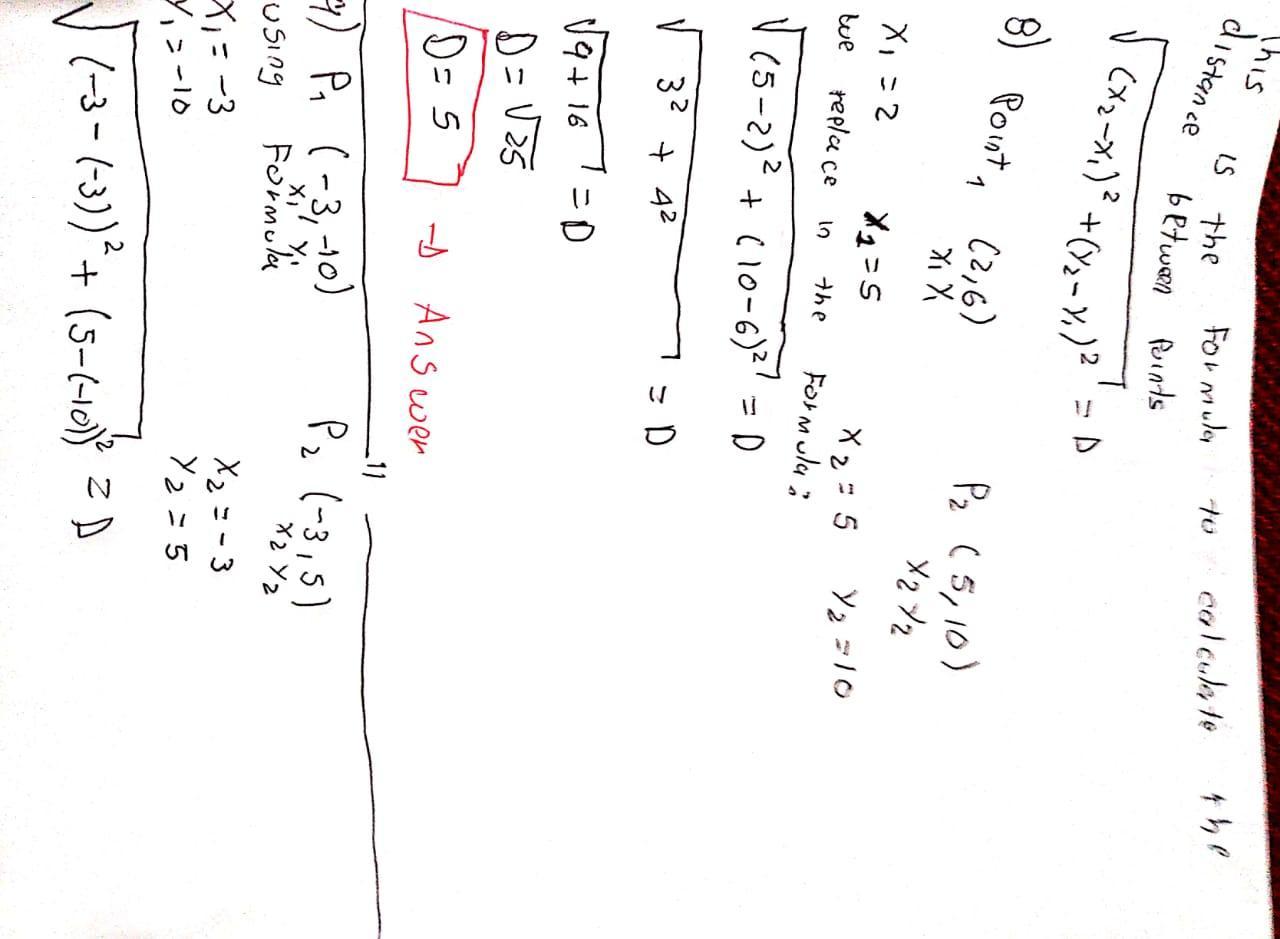 This is the Formula to calculate the
distance between Points
√(x₂-x₁)² + (y₂-y₁)² = D
8) Point₁ (2,6) P₂ (5,10)
x₁ y₁ x₂ y₂
x₁ = 2 x₂ = 5 x₂ = 5 y₂ = 10
we replace in the Formula:
√(5-2)² + (10-6)² = D
√3² + 4² = D
√9+16 = D
D = √25
D = 5 → Answer
11
9) P₁ (-3,-10) P₂ (-3,5)
x₁ y₁ x₂ y₂
using Formula
x₁ = -3 x₂ = -3
y₁ = -10 y₂ = 5
√(-3-(-3))² + (5-(-10))² = D